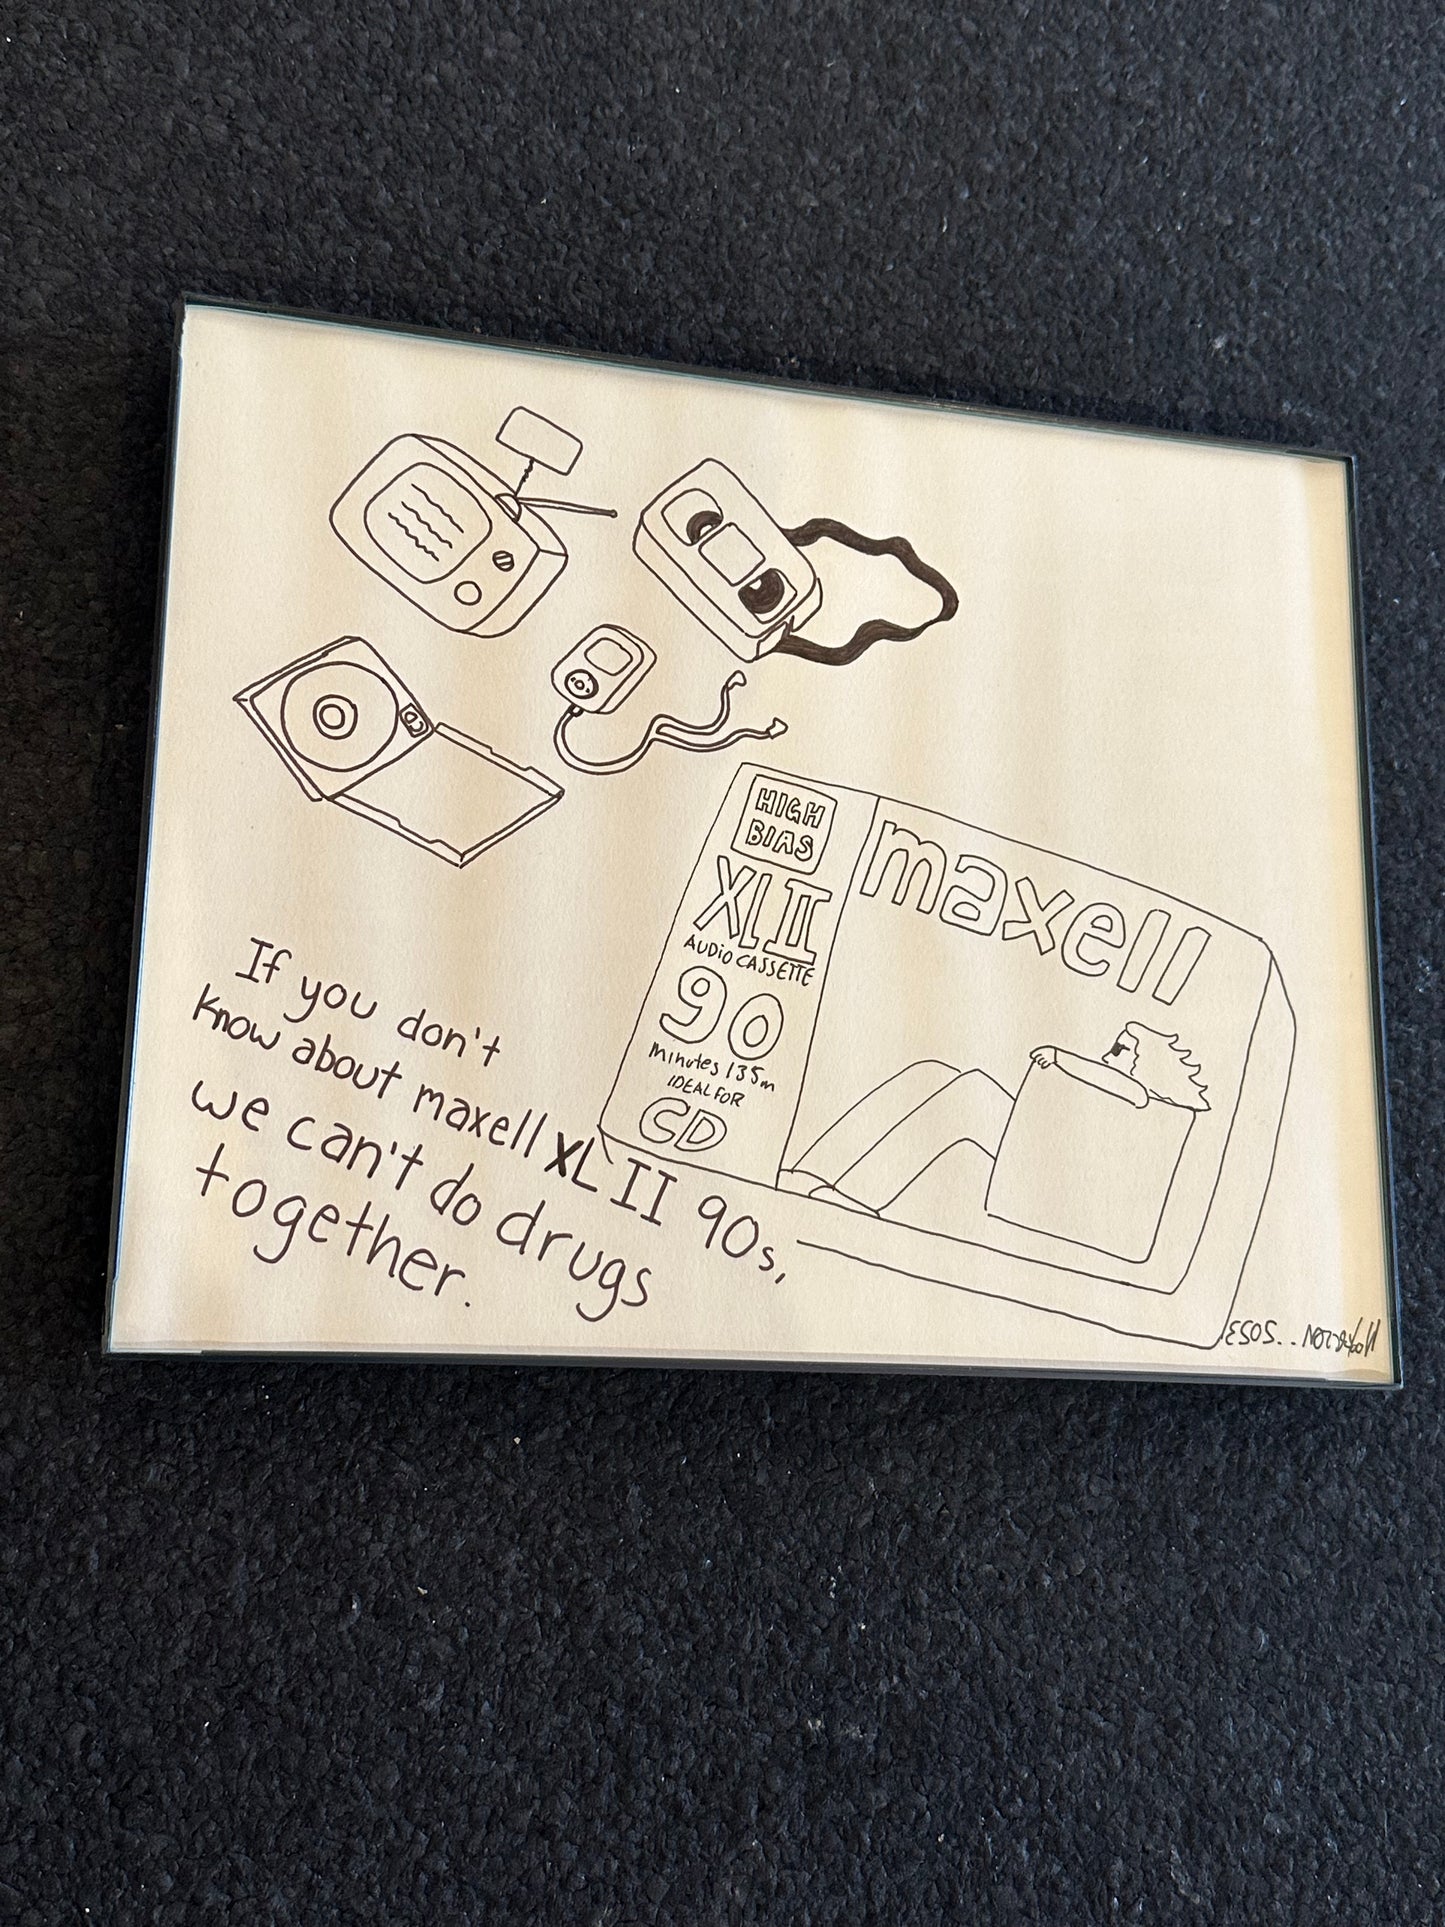 HIGH
BIAS
XLII
AUDIO CASSETTE
90
minutes 135m
IDEAL FOR
CD
maxell
If you don't
know about maxell XL II 90s,
we can't do drugs
together.